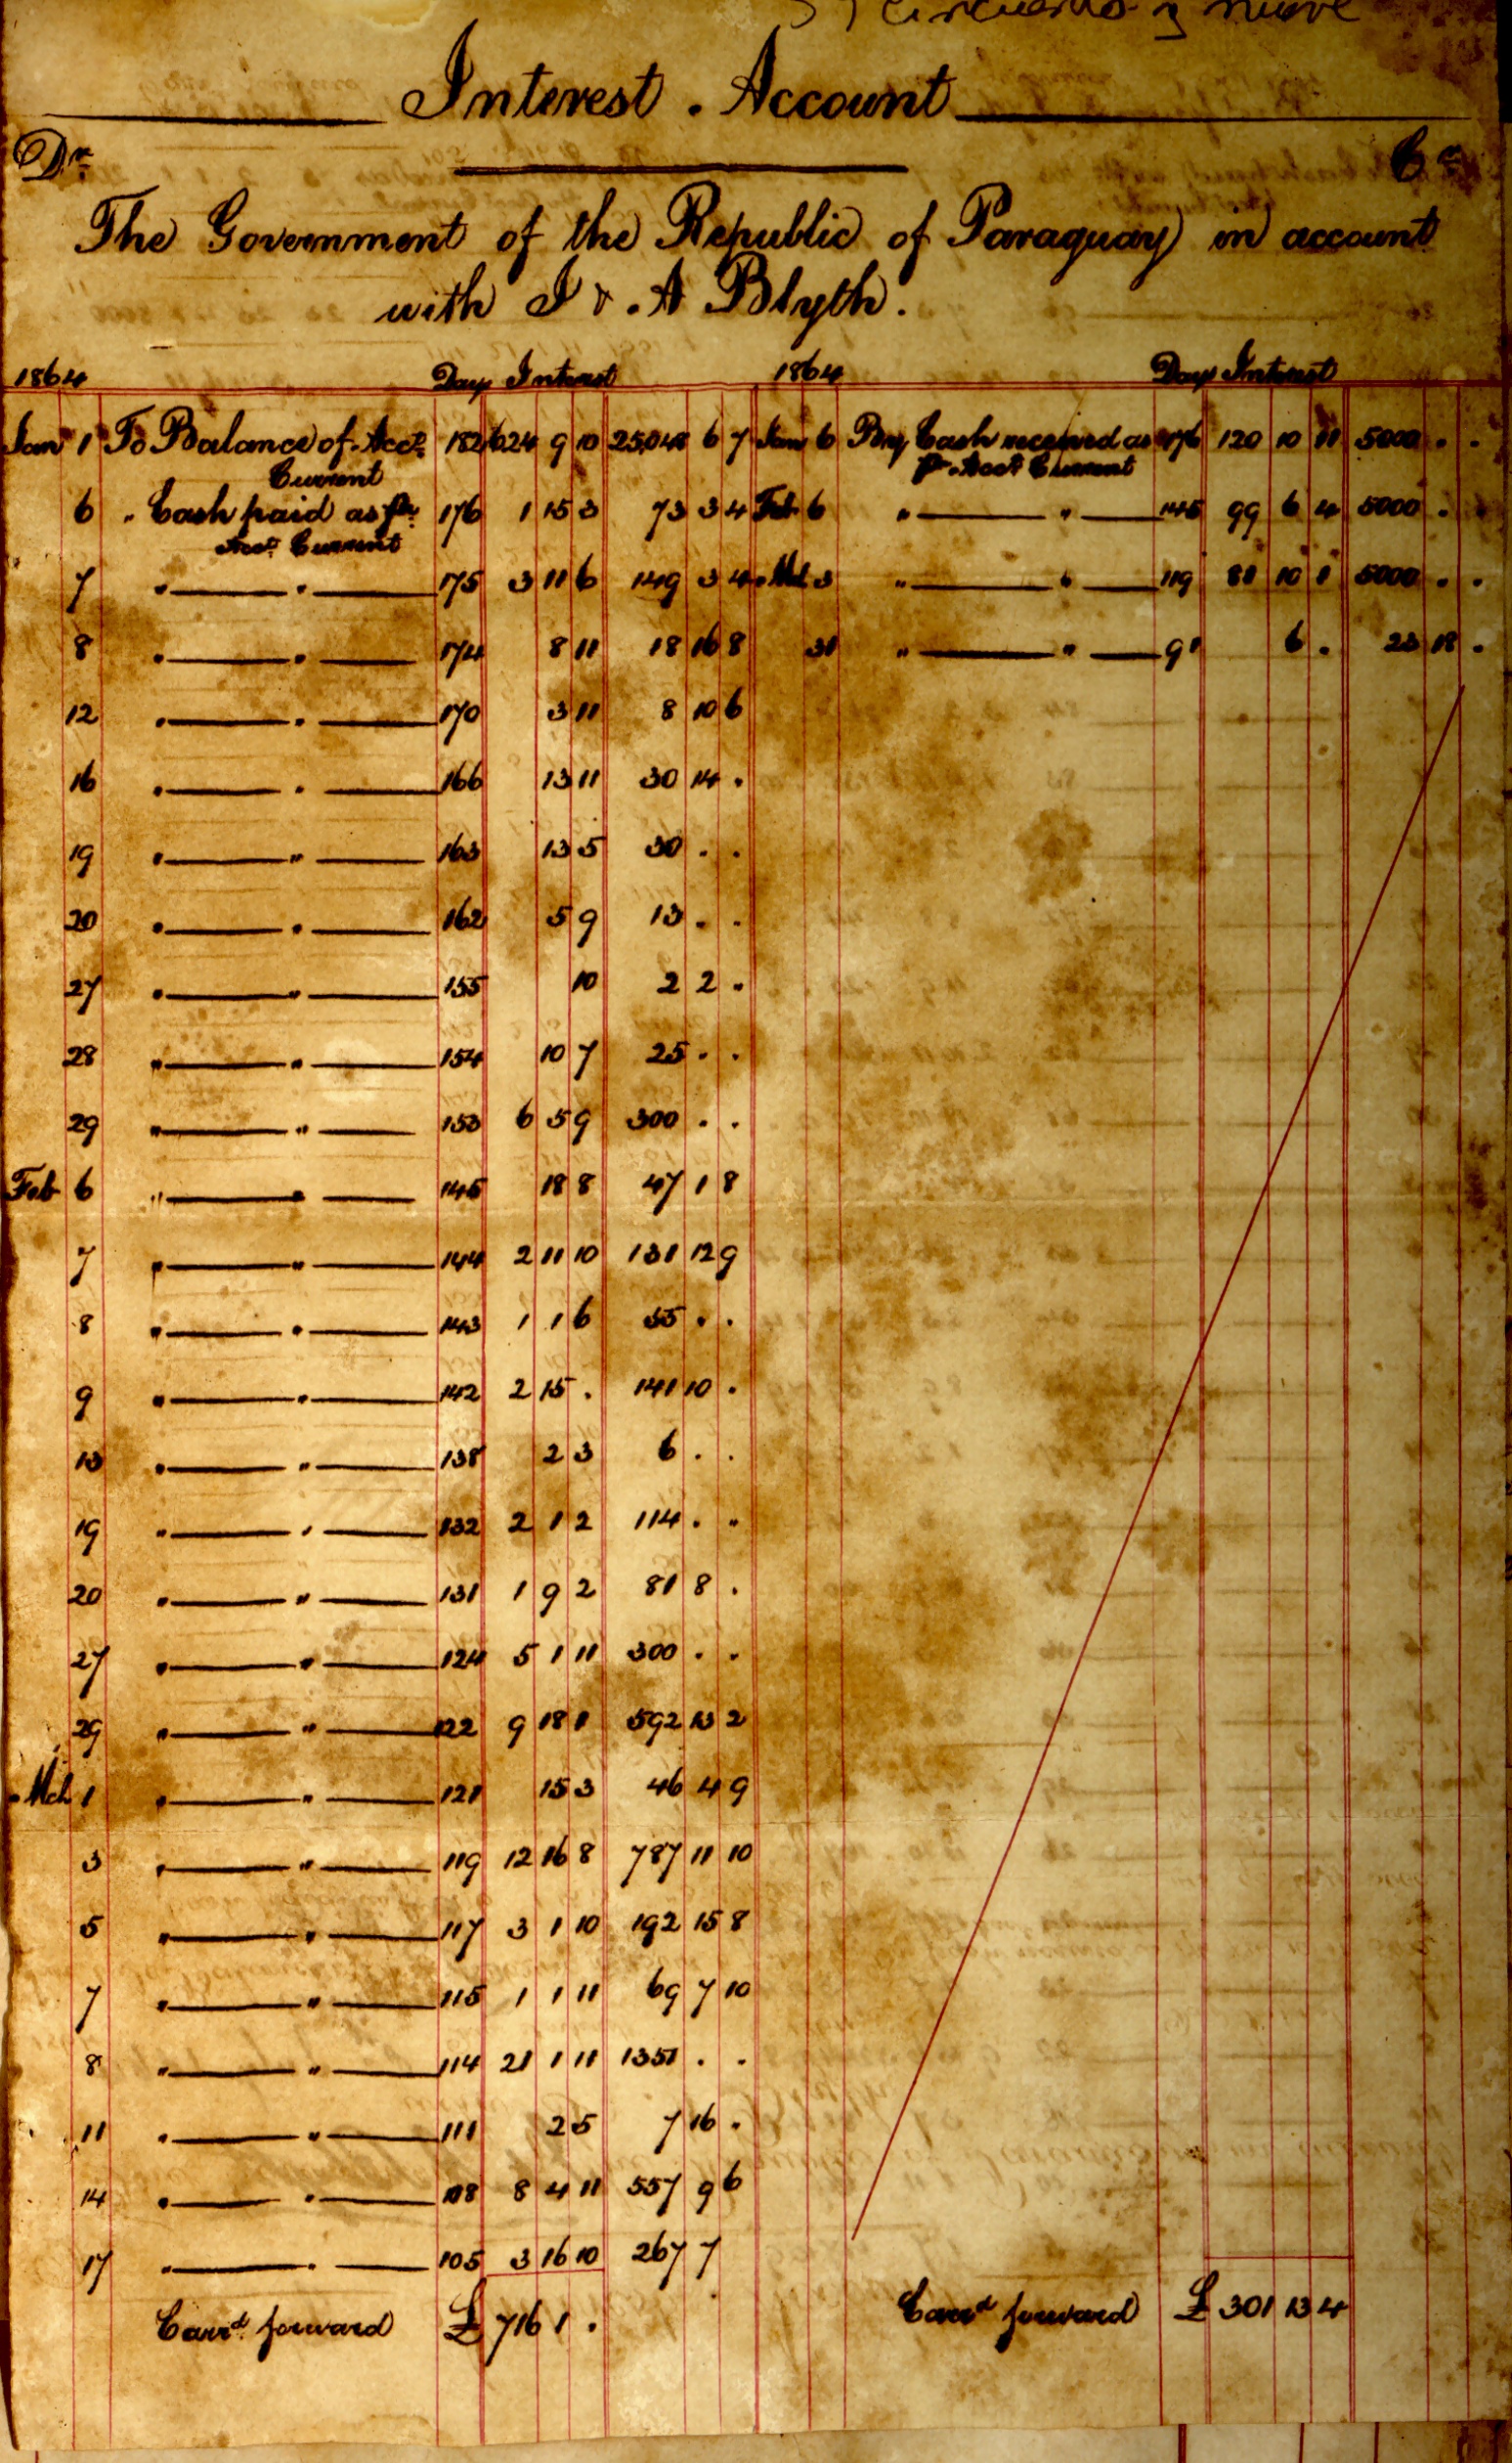 cincuenta y nueve
Interest . Account
Dr. Cr.
The Government of the Republic of Paraguay in account
with J & . A Blyth .
1864 Days Interest 1864 Days Interest
Jan 1 To Balance of Acct. 182 624 9 10 25,048 6 7 Jan 6 By Cash received as 176 120 10 11 5000 . .
Current pr. Acct. Current
6 " Cash paid as pr. 176 1 15 3 73 3 4 Feb 6 " " 145 99 6 4 5000 . .
Acct. Current
7 " " 175 3 11 6 149 3 4 Mch 3 " " 119 81 10 1 5000 . .
8 " " 174 8 11 18 16 8 31 " " 91 6 . 23 18 .
12 " " 170 3 11 8 10 6
16 " " 166 13 11 30 14 .
19 " " 163 13 5 30 . .
20 " " 162 5 9 13 . .
27 " " 155 10 2 2 .
28 " " 154 10 7 25 . .
29 " " 153 6 5 9 300 . .
Feb 6 " " 145 18 8 47 1 8
7 " " 144 2 11 10 131 12 9
8 " " 143 1 1 6 55 . .
9 " " 142 2 15 . 141 10 .
13 " " 138 2 3 6 . .
19 " " 132 2 1 2 114 . .
20 " " 131 1 9 2 81 8 .
27 " " 124 5 1 11 300 . .
29 " " 122 9 18 1 592 13 2
Mch 1 " " 121 15 3 46 4 9
3 " " 119 12 16 8 787 11 10
5 " " 117 3 1 10 192 15 8
7 " " 115 1 1 11 69 7 10
8 " " 114 21 1 11 1351 . .
11 " " 111 2 5 7 16 .
14 " " 108 8 4 11 557 9 6
17 " " 105 3 16 10 267 7
Carrd. forward £ 716 1 . Carrd forward £ 301 13 4